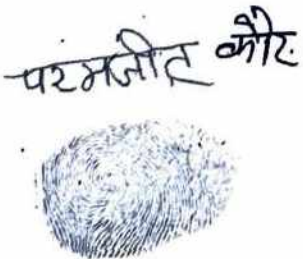 परमजीत कौर